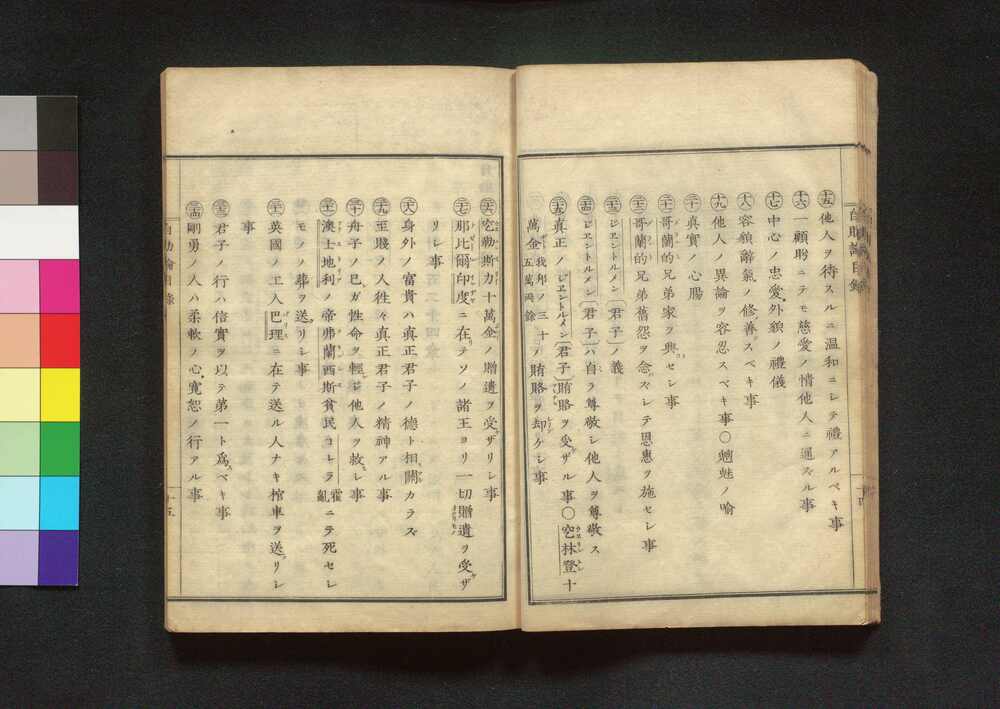 十五 他人ヲ待スルニ温和ニシテ禮アルベキ事
十六 一顧眄ニテモ慈愛ノ情他人ニ通ズル事
十七 中心ノ忠愛外貌ノ禮儀
十八 容貌辭氣ノ修善スベキ事
十九 他人ノ異論ヲ容忍スベキ事〇魑魅ノ喻
二十 真實ノ心腸
二十一 哥蘭的兄弟家ヲ興セシ事
二十二 哥蘭的兄弟舊怨ヲ念ズシテ恩惠ヲ施セシ事
二十三 ゼエントルメン〔君子〕ノ義
二十四 ゼエントルメン〔君子〕ハ自ラ尊敬シ他人ヲ尊敬ス
二十五 真正ノゼエントルメン〔君子〕賄賂ヲ受ザル事〇空林登十
萬金我邦ノ三十五萬兩餘ノ賄賂ヲ却ケシ事
自助論目録
二十六 空勒斯力十萬金ノ贈遺ヲ受ザリシ事
二十七 那比爾印度ニ在テソノ諸王ヨリ一切贈遺ヲ受ザ
リシ事
二十八 身外ノ富貴ハ真正君子ノ德ト相關カラズ
二十九 至賤ノ人徃々真正君子ノ精神アル事
三十 舟子ノ己ガ性命ヲ輕ジ他人ヲ救シ事
三十一 澳士地利ノ帝弗蘭西斯貧民コレラ霍亂ニテ死セシ
モノノ葬ヲ送リシ事
三十二 英國ノ工人巴理ニ在テ送ル人ナキ棺車ヲ送リシ
事
三十三 君子ノ行ハ信實ヲ以テ第一ト為ベキ事
三十四 剛勇ノ人ハ柔軟ノ心寛恕ノ行アル事
自助論目錄
十五